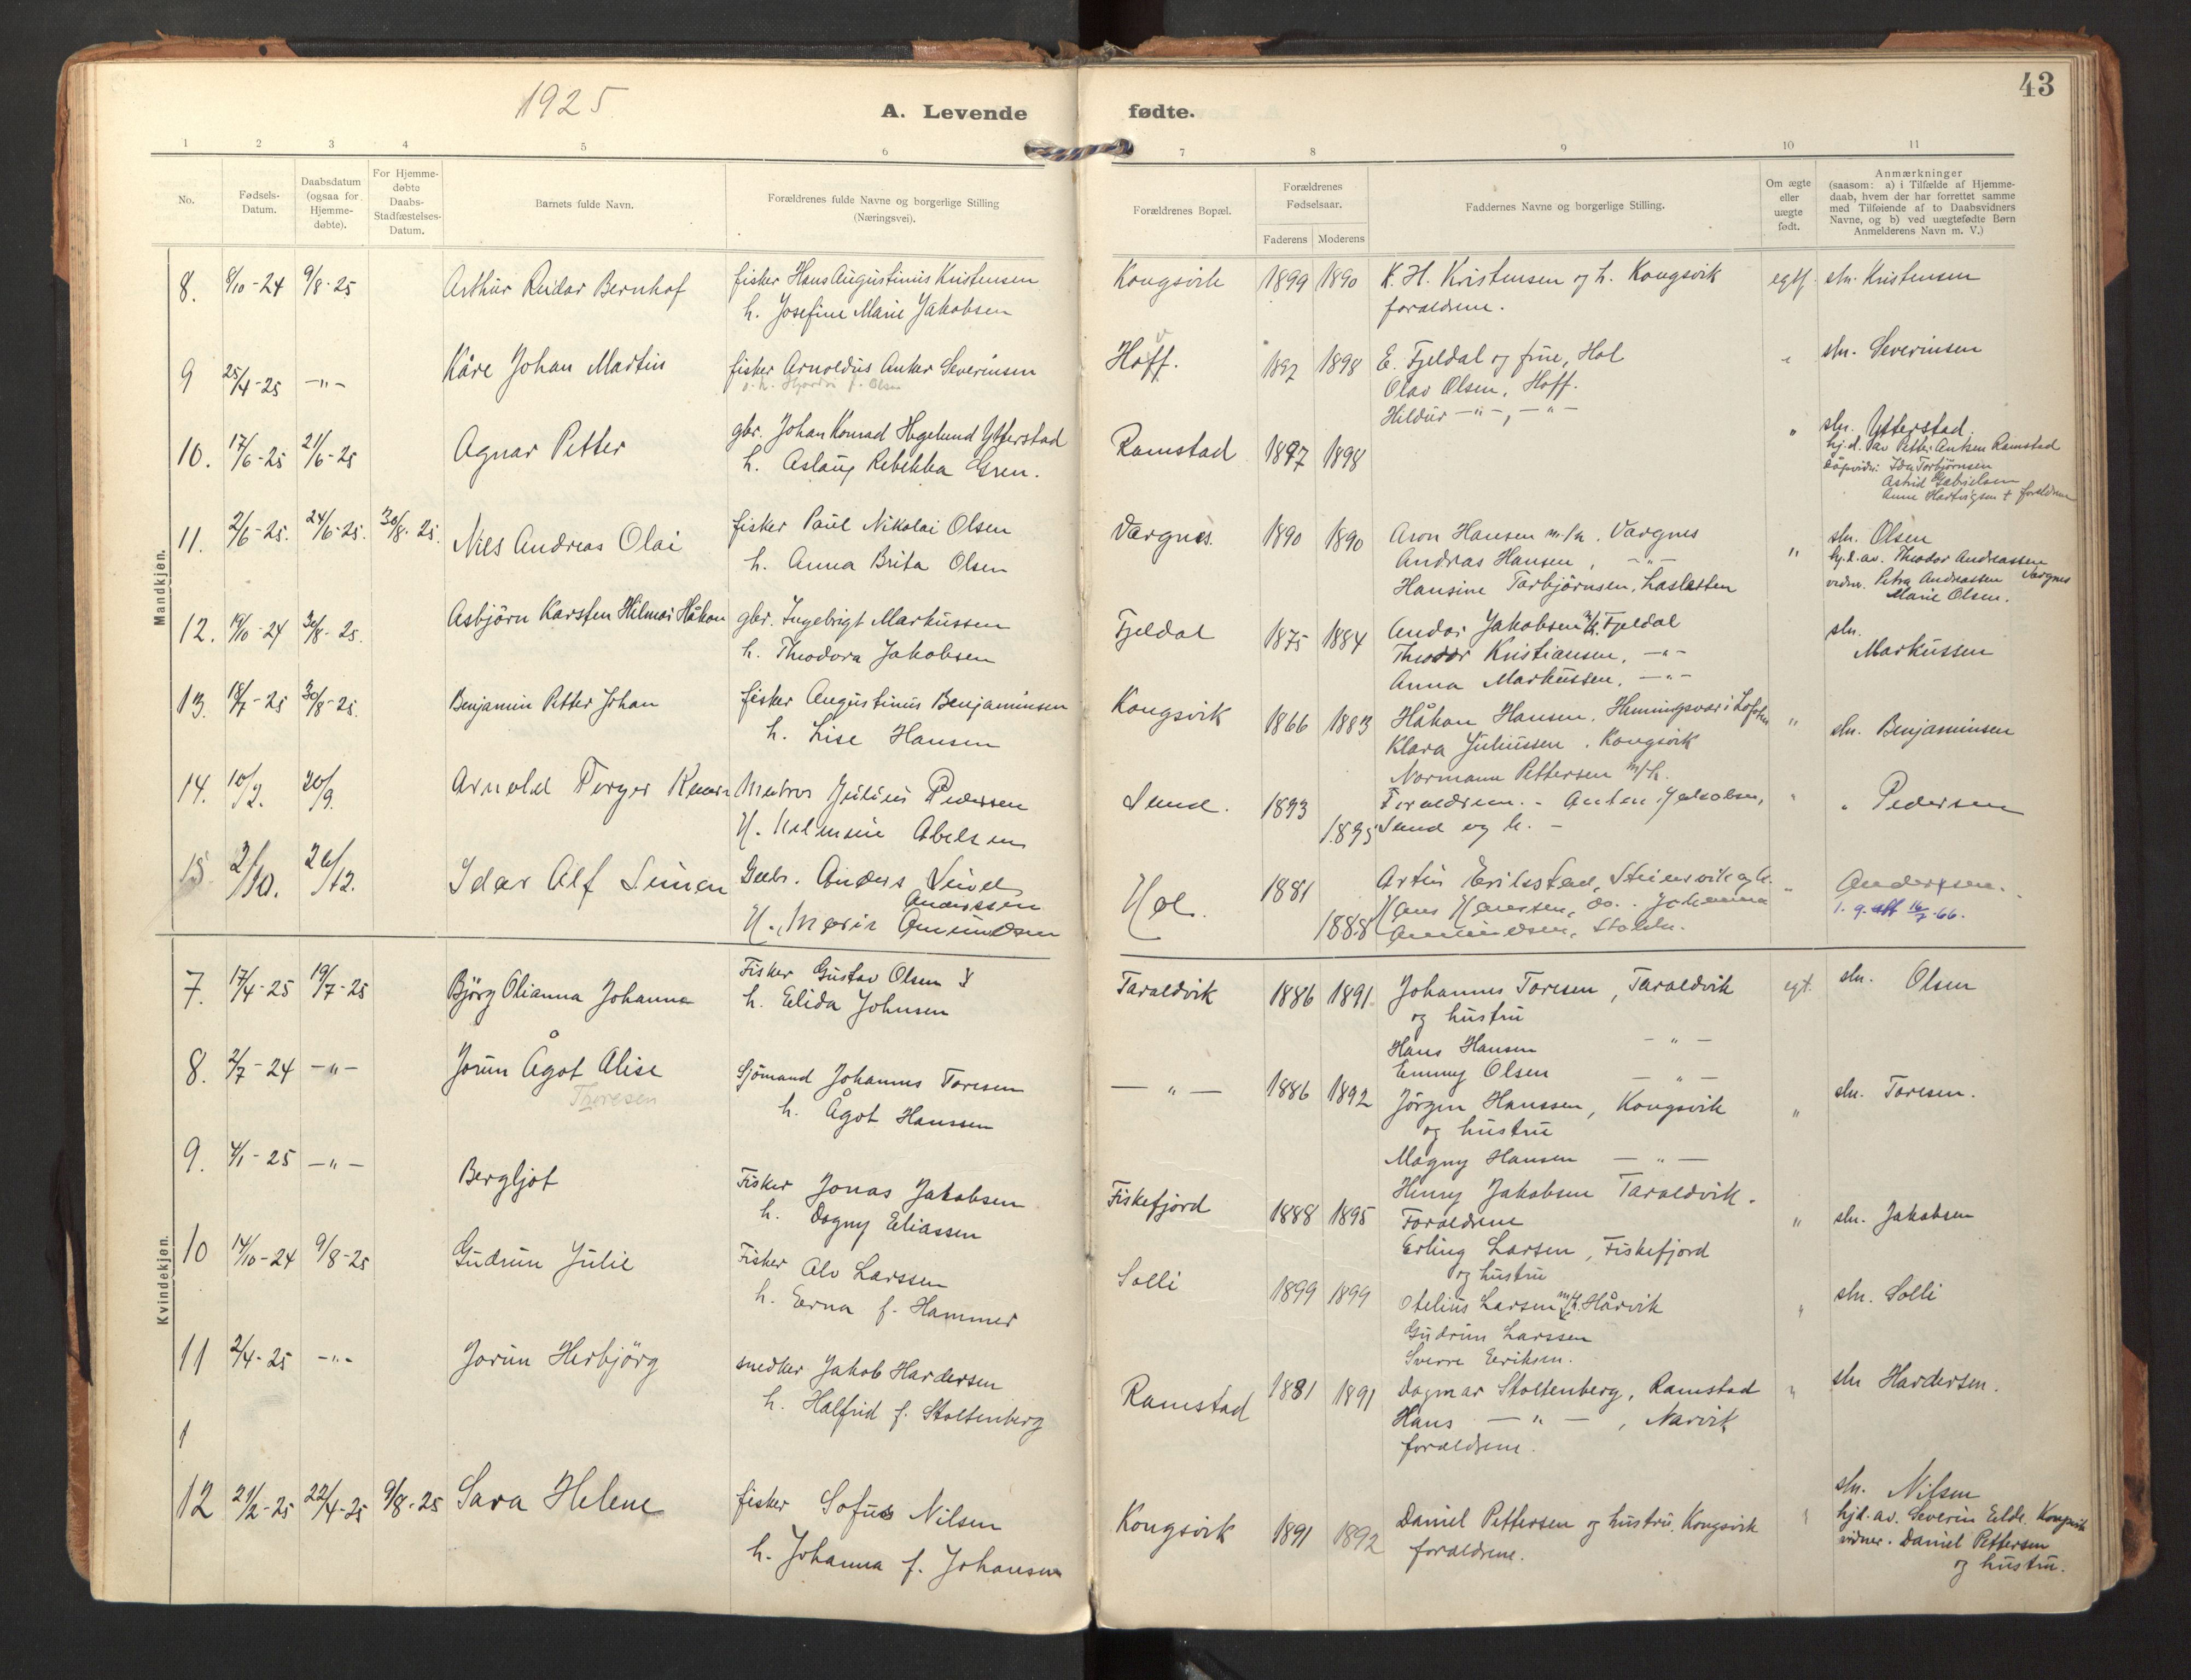 1925
A. Levende
fødte.
43
1 2 3 4 5 6
7 8 9 10 11
No.
Fødsels-
Datum.
Daabsdatum
(ogsaa for
Hjemme-
døbte).
For Hjemme-
døbte
Daabs-
Stadfæstelses-
Datum.
Barnets fulde Navn.
Forældrenes fulde Navne og borgerlige Stilling
(Næringsvei).
Forældrenes Bopæl.
Forældrenes
Fødselsaar.
Faderens Moderens
Faddernes Navne og borgerlige Stilling.
Om ægte
eller
uægte
født.
Anmærkninger
(saasom: a) i Tilfælde af Hjemme-
daab, hvem der har forrettet samme
med Tilføiende af to Daabsvidners
Navne, og b) ved uægtefødte Børn
Anmelderens Navn m. V.)
Mandkjøn.
8. 8/10-24 9/8-25 Arthur Reidar Bernhof
fisker Hans Augustinus Kristensen
h. Josefine Marie Jakobsen
Kongsvik 1899 1890
K. H. Kristensen og h. Kongsvik
foraldrene.
sln. Kristensen
9 25/4-25 -"- Kåre Johan Martin
fisker Arnoldus Anker Severinsen
Hoff. 1897 1898
E. Fjeldal og frue, Hol
Olav Olsen, Hoff.
Hildur -"-, -"-
sln. Severinsen
10. 17/6-25 21/6-25 Agnar Petter
gbr. Johan Konrad Hegelund Ytterstad
h. Aslaug Rebekka Gren.
Ramstad 1897 1898
" sln. Ytterstad.
hj.d. av Petter Antsen Ramstad
Ida Torbjørnsen
Astrid Gabrielsen
Anna Hartvigsen + foreldrene
11. 2/6-25. 24/6-25. 30/8-25. Nils Andreas Olai
fisker Paul Nikolai Olsen
h. Anna Brita Olsen
Vargnes. 1890 1890
Aron Hansen m/h. Vargnes
Andreas Hansen, -"-
Hansine Torbjørnsen,
" sln. Olsen
hj.d. av. Theodor Andreassen
vidner. Petra Andreassen Vargnes
Marie Olsen.
12. 19/10-24 30/8-25. Asbjörn Karsten Hilmar Håkon
gbr. Ingebrigt Markussen
h. Theodora Jakobsen
Fjeldal 1875 1884
Andor Jakobsen m/h. Fjeldal
Theodor Kristiansen, -"-
Anna Markussen, -"-
sln.
Markussen
13. 18/7-25 30/8-25. Benjamin Petter Johan
fisker Augustinus Benjaminsen
h. Lise Hansen
Kongsvik 1866 1883
Håkon Hansen. Henningsvær i Lofoten
Klara Juliussen. Kongsvik
Normann Pettersen m/h.
" sln. Benjaminsen
14. 10/2. 20/9. Arnold Torger
Julius Pedersen
H. Abelsen
Sund. 1893 1895
Foraldrene. - Anton Jakobsen,
Sund og h. -
" Pedersen
15 2/10. 26/12. Idar Alf Simon
Gbr. Anders
Anderssen
H. Marie Amundsen
Hol. 1881 1888
Hans Hansen, do. - Johanna
Amundsen,
Anderssen.
16/7-66.
Kvindekjøn.
7. 17/4-25 19/7-25 Björg Olianna Johanna
Fisker Gustav Olsen
h. Elida Johnsen
Taraldvik 1886 1891
Johannes Toresen, Taraldvik
og hustru
Hans Hansen -"-
Emmy Olsen -"-
egt. sln. Olsen
8. 2/7-24 -"- Jorun Ågot Alise
Thoresen
Sjömand Johannes Toresen
h. Ågot Hanssen
-"- 1886 1892
Jörgen Hanssen, Kongsvik
og hustru
Magny Hansen -"-
Henry Jakobsen Taraldvik.
" sln. Toresen.
9. 4/1-25 -"- Bergljot
Fisker Jonas Jakobsen
h. Dagny Eliassen
Fiskefjord 1888 1895
Foraldrene
Erling Larsen, Fiskefjord
og hustru
" sln. Jakobsen
10 14/10-24 9/8-25 Gudrun Julie
Fisker Alv Larssen
h. Erna f. Hammer
Solli 1899 1899
Otelius Larsen m/h. Hårvik
Gudrun Larssen
Sverre Eeriksen.
" sln. Solli
11 2/4-25 -"- Jorun Herbjörg
snedker Jakob Hardersen
h. Halfrid f. Stoltenberg
Ramstad 1881 1891
Dagmar Stoltenberg, Ramstad
Hans -"-, Narvik
foraldrene.
" sln Hardersen.
1
12 21/2-25 22/4-25 9/8-25 Sara Helene
fisker Sofus Nilsen
h. Johanna f. Johansen
Kongsvik 1891 1892
Daniel Pettersen og hustru. Kongsvik
foraldrene.
sln. Nilsen
hjd. av. Severin Eilds. Kongsvik
vidner. Daniel Pettersen
og hustru.